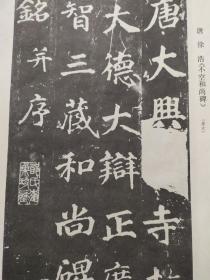 唐 徐 浩《不空和尚碑》
唐大興寺故
大德大辯正廣
智三藏和尚碑
銘并序